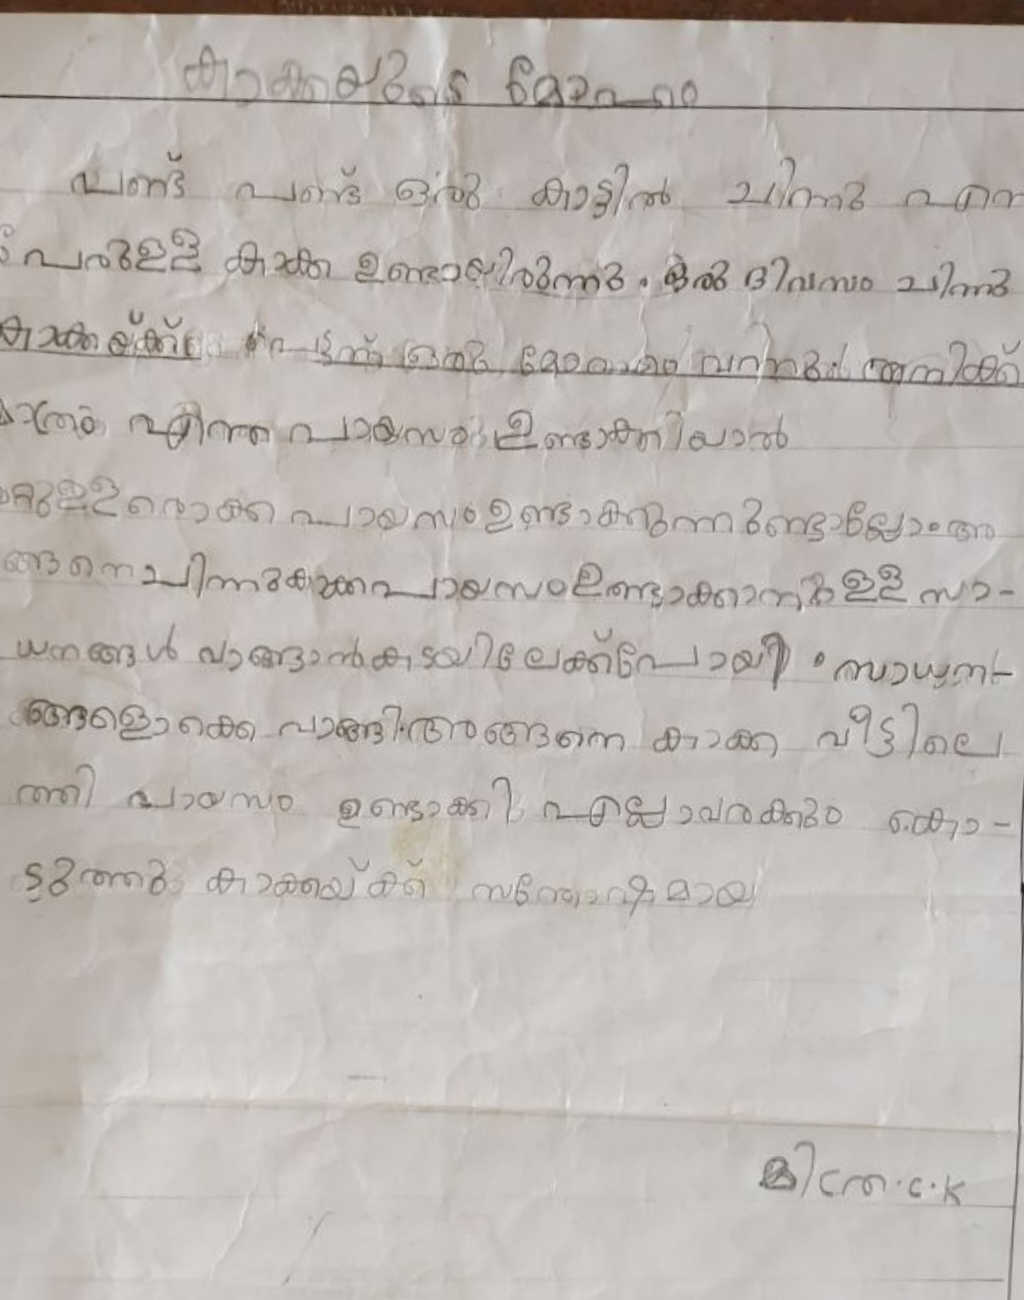 കാക്കയുടെ മോഹം
പണ്ട് പണ്ട് ഒരു കാട്ടിൽ ചിന്നു എന്ന
പേരുള്ള കാക്ക ഉണ്ടായിരുന്നു. ഒരു ദിവസം ചിന്നു
കാക്കയ്ക്ക് പെട്ടന്ന് ഒരു മോഹം വന്നു. എനിക്ക്
മാത്രം എന്താ പായസം ഉണ്ടാക്കിയാൽ
മറ്റുള്ളരൊക്കെ പായസം ഉണ്ടാക്കുന്നുണ്ടാല്ലോ. അ
ങ്ങനെ ചിന്നുകാക്ക പായസം ഉണ്ടാക്കാനുള്ള സാ-
ധനങ്ങൾ വാങ്ങാൻ കടയിലേക്ക് പോയി. സാധന-
ങ്ങളൊക്കെ വാങ്ങി. അങ്ങനെ കാക്ക വീട്ടിലെ
ത്തി പായസം ഉണ്ടാക്കി എല്ലാവരക്കും കൊ-
ടുത്തു കാക്കയ്ക്ക് സന്തോഷമായ
മിത്ര.C.K